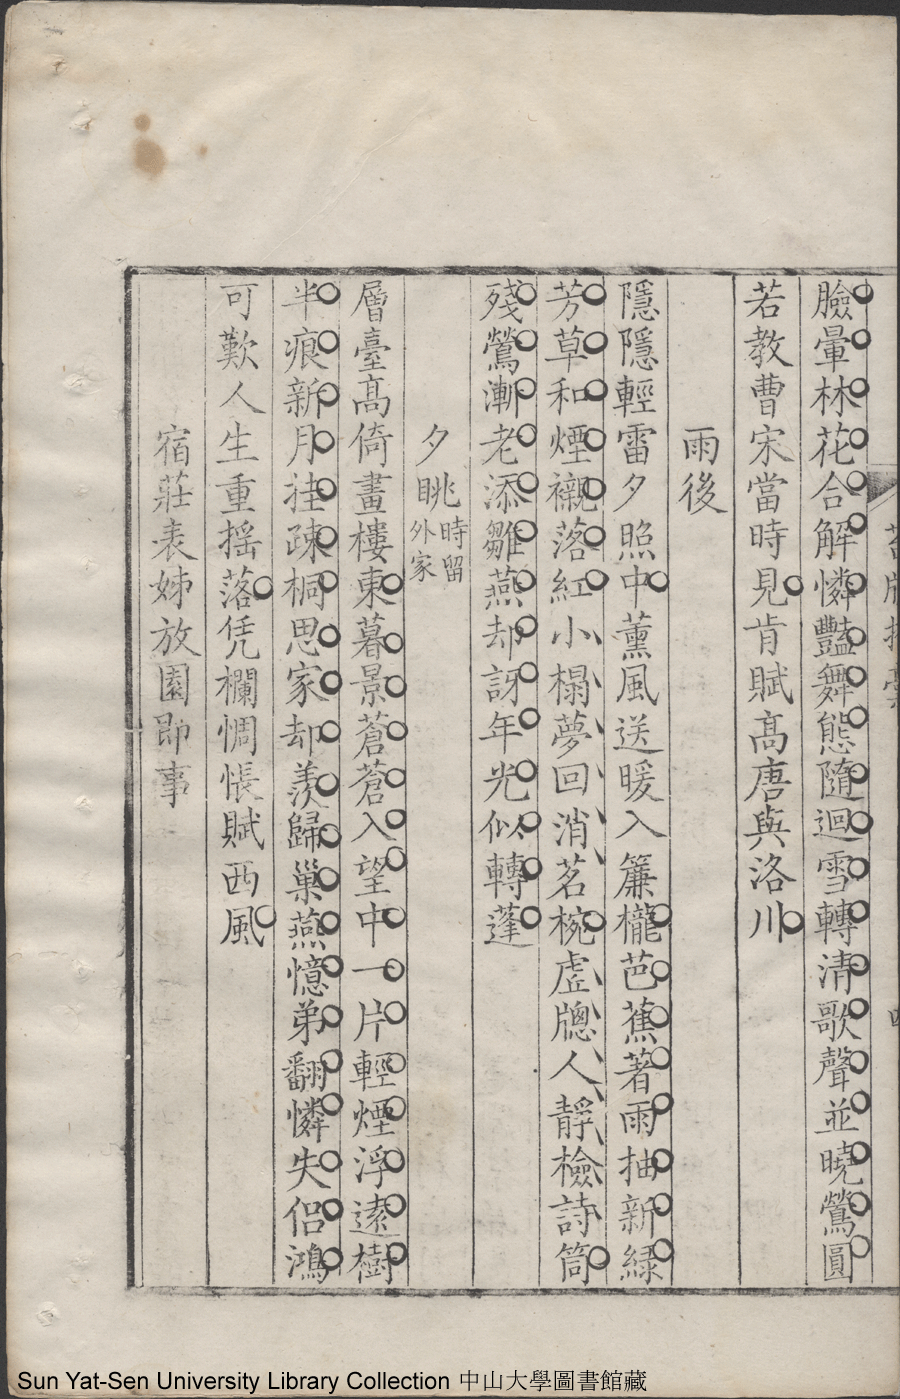 臉暈林花合解憐豔舞態隨迴雪轉清歌聲並曉鶯圓
若教曹宋當時見肯賦高唐與洛川
雨後
隱隱輕雷夕照中薰風送暖入簾櫳芭蕉著雨抽新綠
芳草和煙襯落紅小榻夢回消茗椀虛牕人靜檢詩筒
殘鶯漸老添雛燕却訝年光似轉蓬
夕眺時留外家
層臺高倚畫樓東暮景蒼蒼入望中一片輕煙浮遠樹
半痕新月挂疎桐思家却羨歸巢燕憶弟翻憐失侶鴻
可歎人生重搖落凭欄惆悵賦西風
宿莊表姊放園即事
Sun Yat-Sen University Library Collection 中山大學圖書館藏